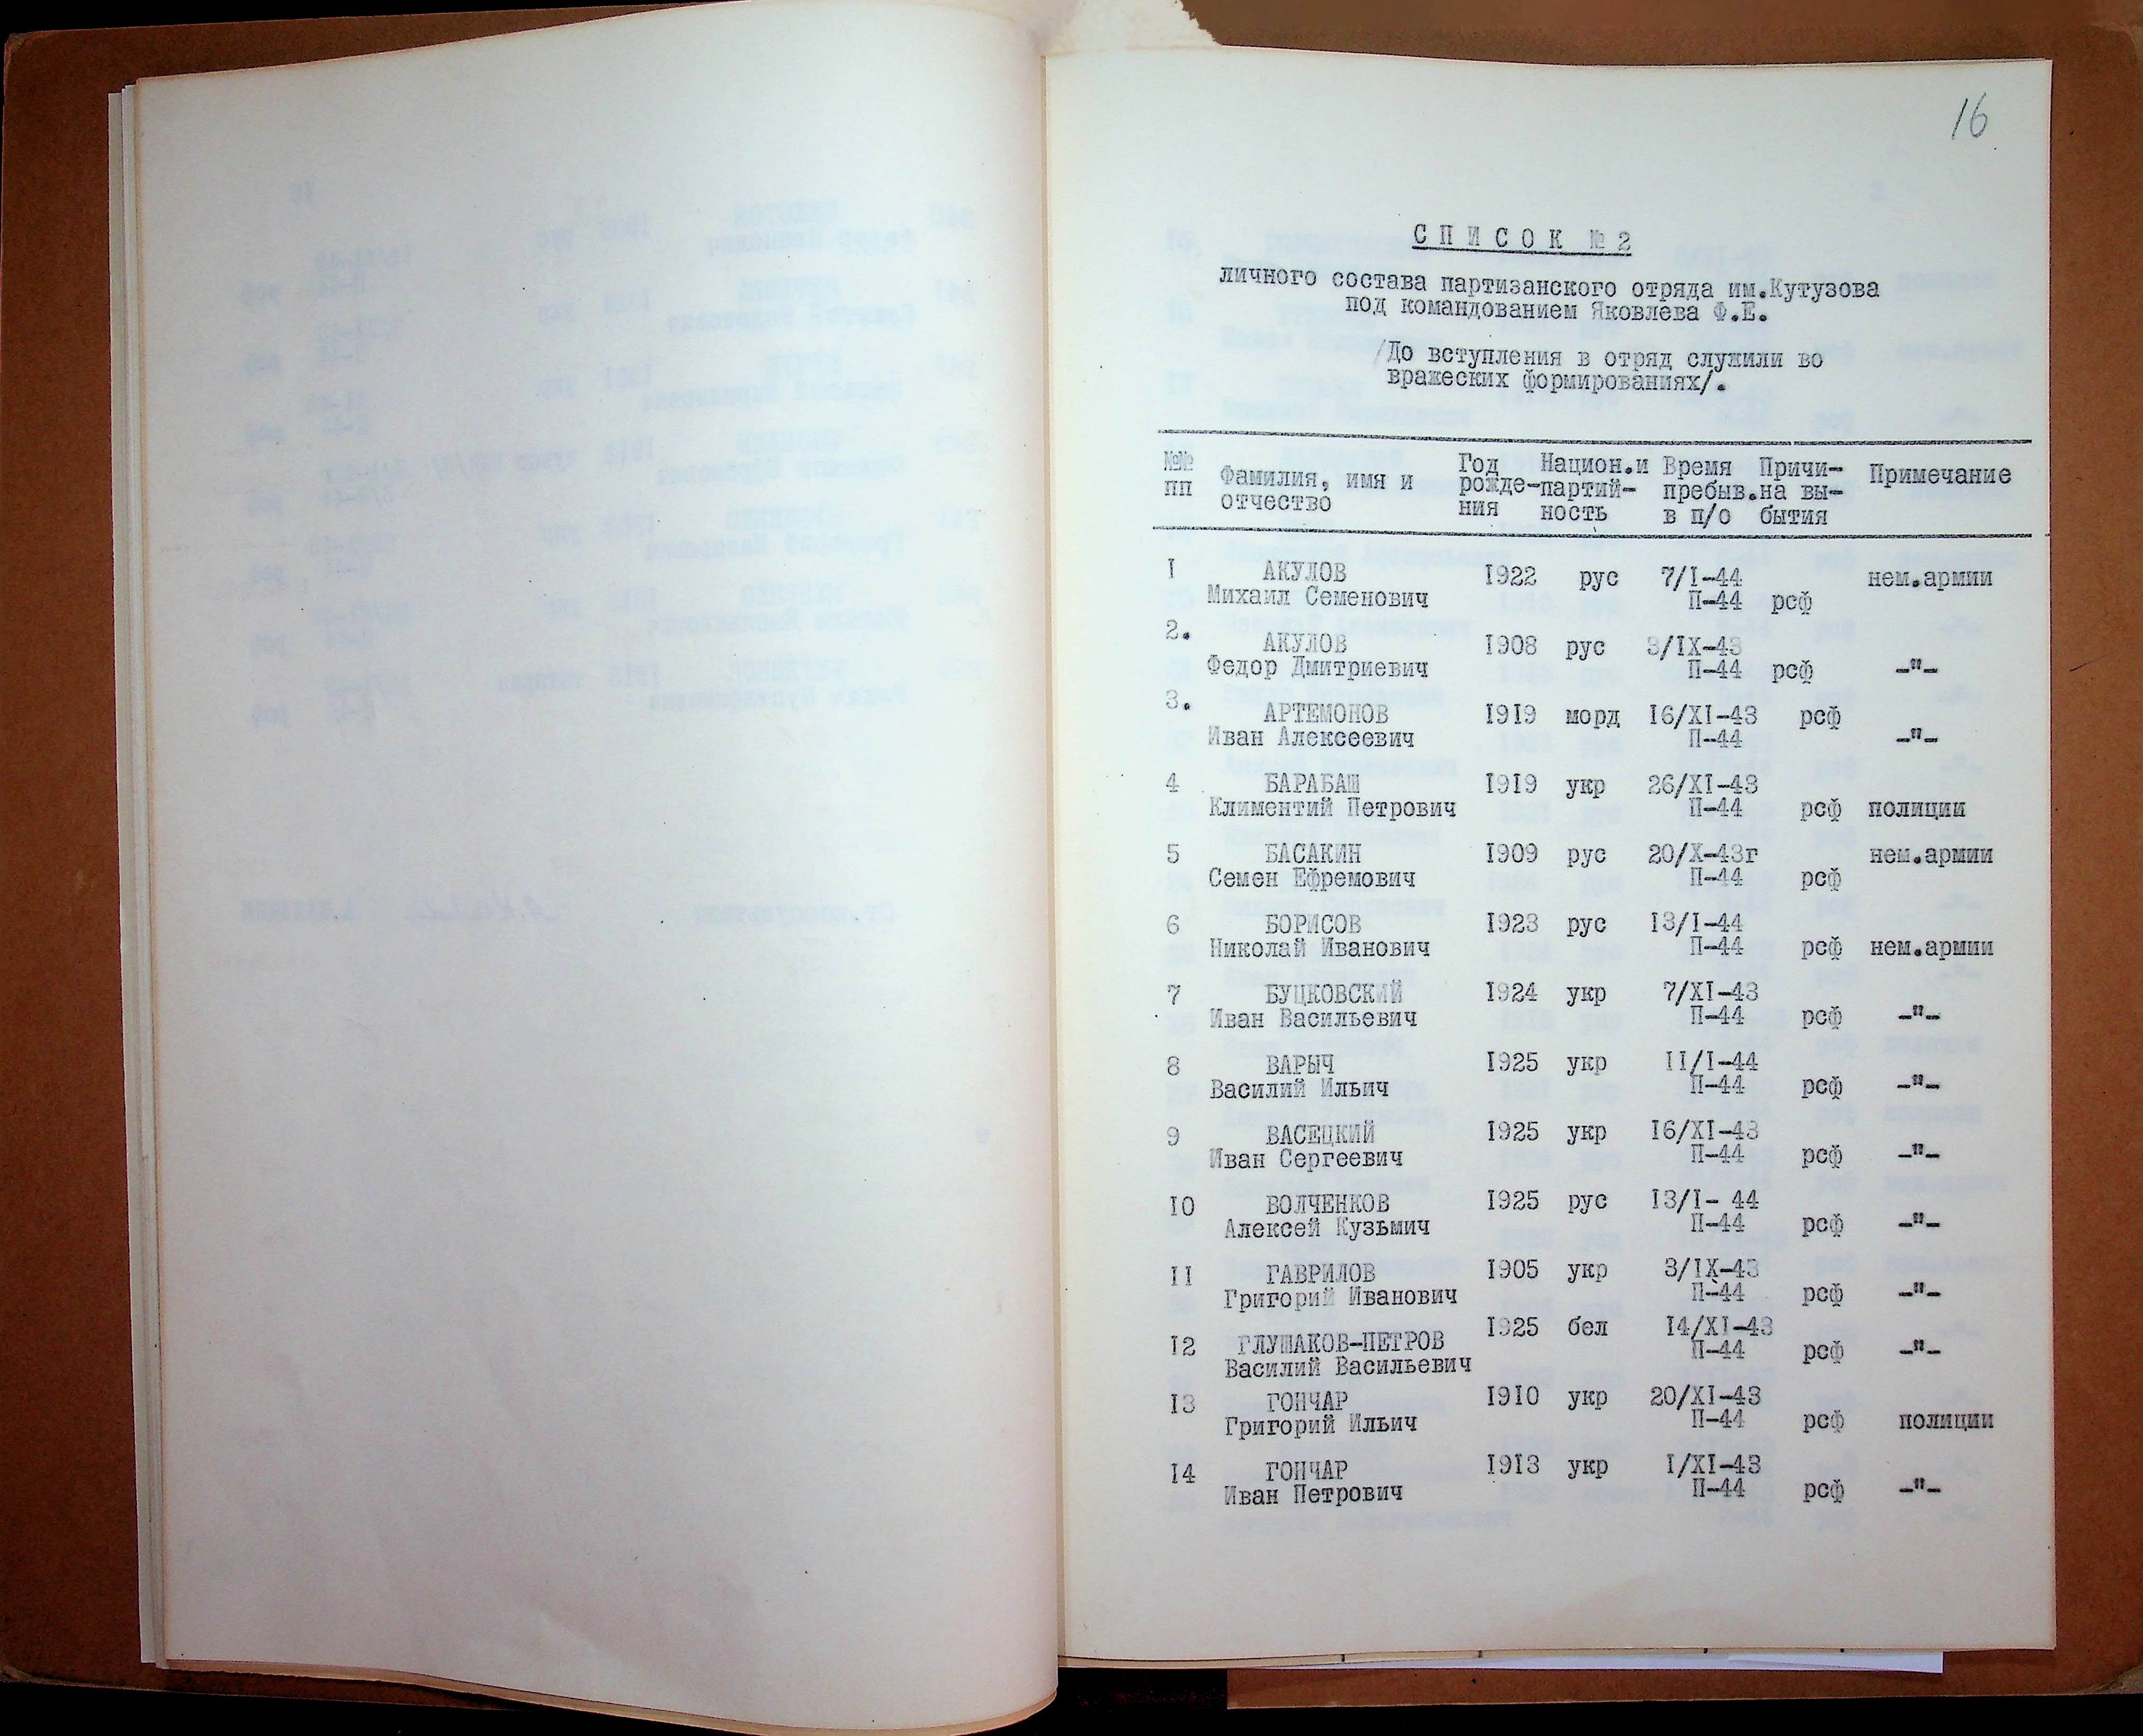 16
СПИСОК № 2
личного состава партизанского отряда им.Кутузова
под командованием Яковлева Ф.Е.
/До вступления в отряд служили во
вражеских формированиях/.
№№ пп Фамилия, имя и отчество Год рожде-ния Национ.и партий-ность Время пребыв. в п/о Причи-на вы-бытия Примечание
I АКУЛОВ I922 рус 7/I-44 нем.армии
Михаил Семенович П-44 рсф
2. АКУЛОВ I908 рус 3/IX-43
Федор Дмитриевич П-44 рсф -"-
3. АРТЕМОНОВ I9I9 морд I6/XI-43 рсф
Иван Алексеевич П-44 -"-
4 БАРАБАШ I9I9 укр 26/XI-43
Климентий Петрович П-44 рсф полиции
5 БАСАКИН I909 рус 20/X-43г нем.армии
Семен Ефремович П-44 рсф
6 БОРИСОВ I923 рус I3/I-44
Николай Иванович П-44 рсф нем.армии
7 БУЦКОВСКИЙ I924 укр 7/XI-43
Иван Васильевич П-44 рсф -"-
8 ВАРЫЧ I925 укр II/I-44
Василий Ильич П-44 рсф -"-
9 ВАСЕЦКИЙ I925 укр I6/XI-43
Иван Сергеевич П-44 рсф -"-
I0 ВОЛЧЕНКОВ I925 рус I3/I- 44
Алексей Кузьмич П-44 рсф -"-
II ГАВРИЛОВ I905 укр 3/IX-43
Григорий Иванович П-44 рсф -"-
I2 ГЛУШАКОВ-ПЕТРОВ I925 бел I4/XI-43
Василий Васильевич П-44 рсф -"-
I3 ГОНЧАР I9I0 укр 20/XI-43
Григорий Ильич П-44 рсф полиции
I4 ГОНЧАР I9I3 укр I/XI-43
Иван Петрович П-44 рсф -"-